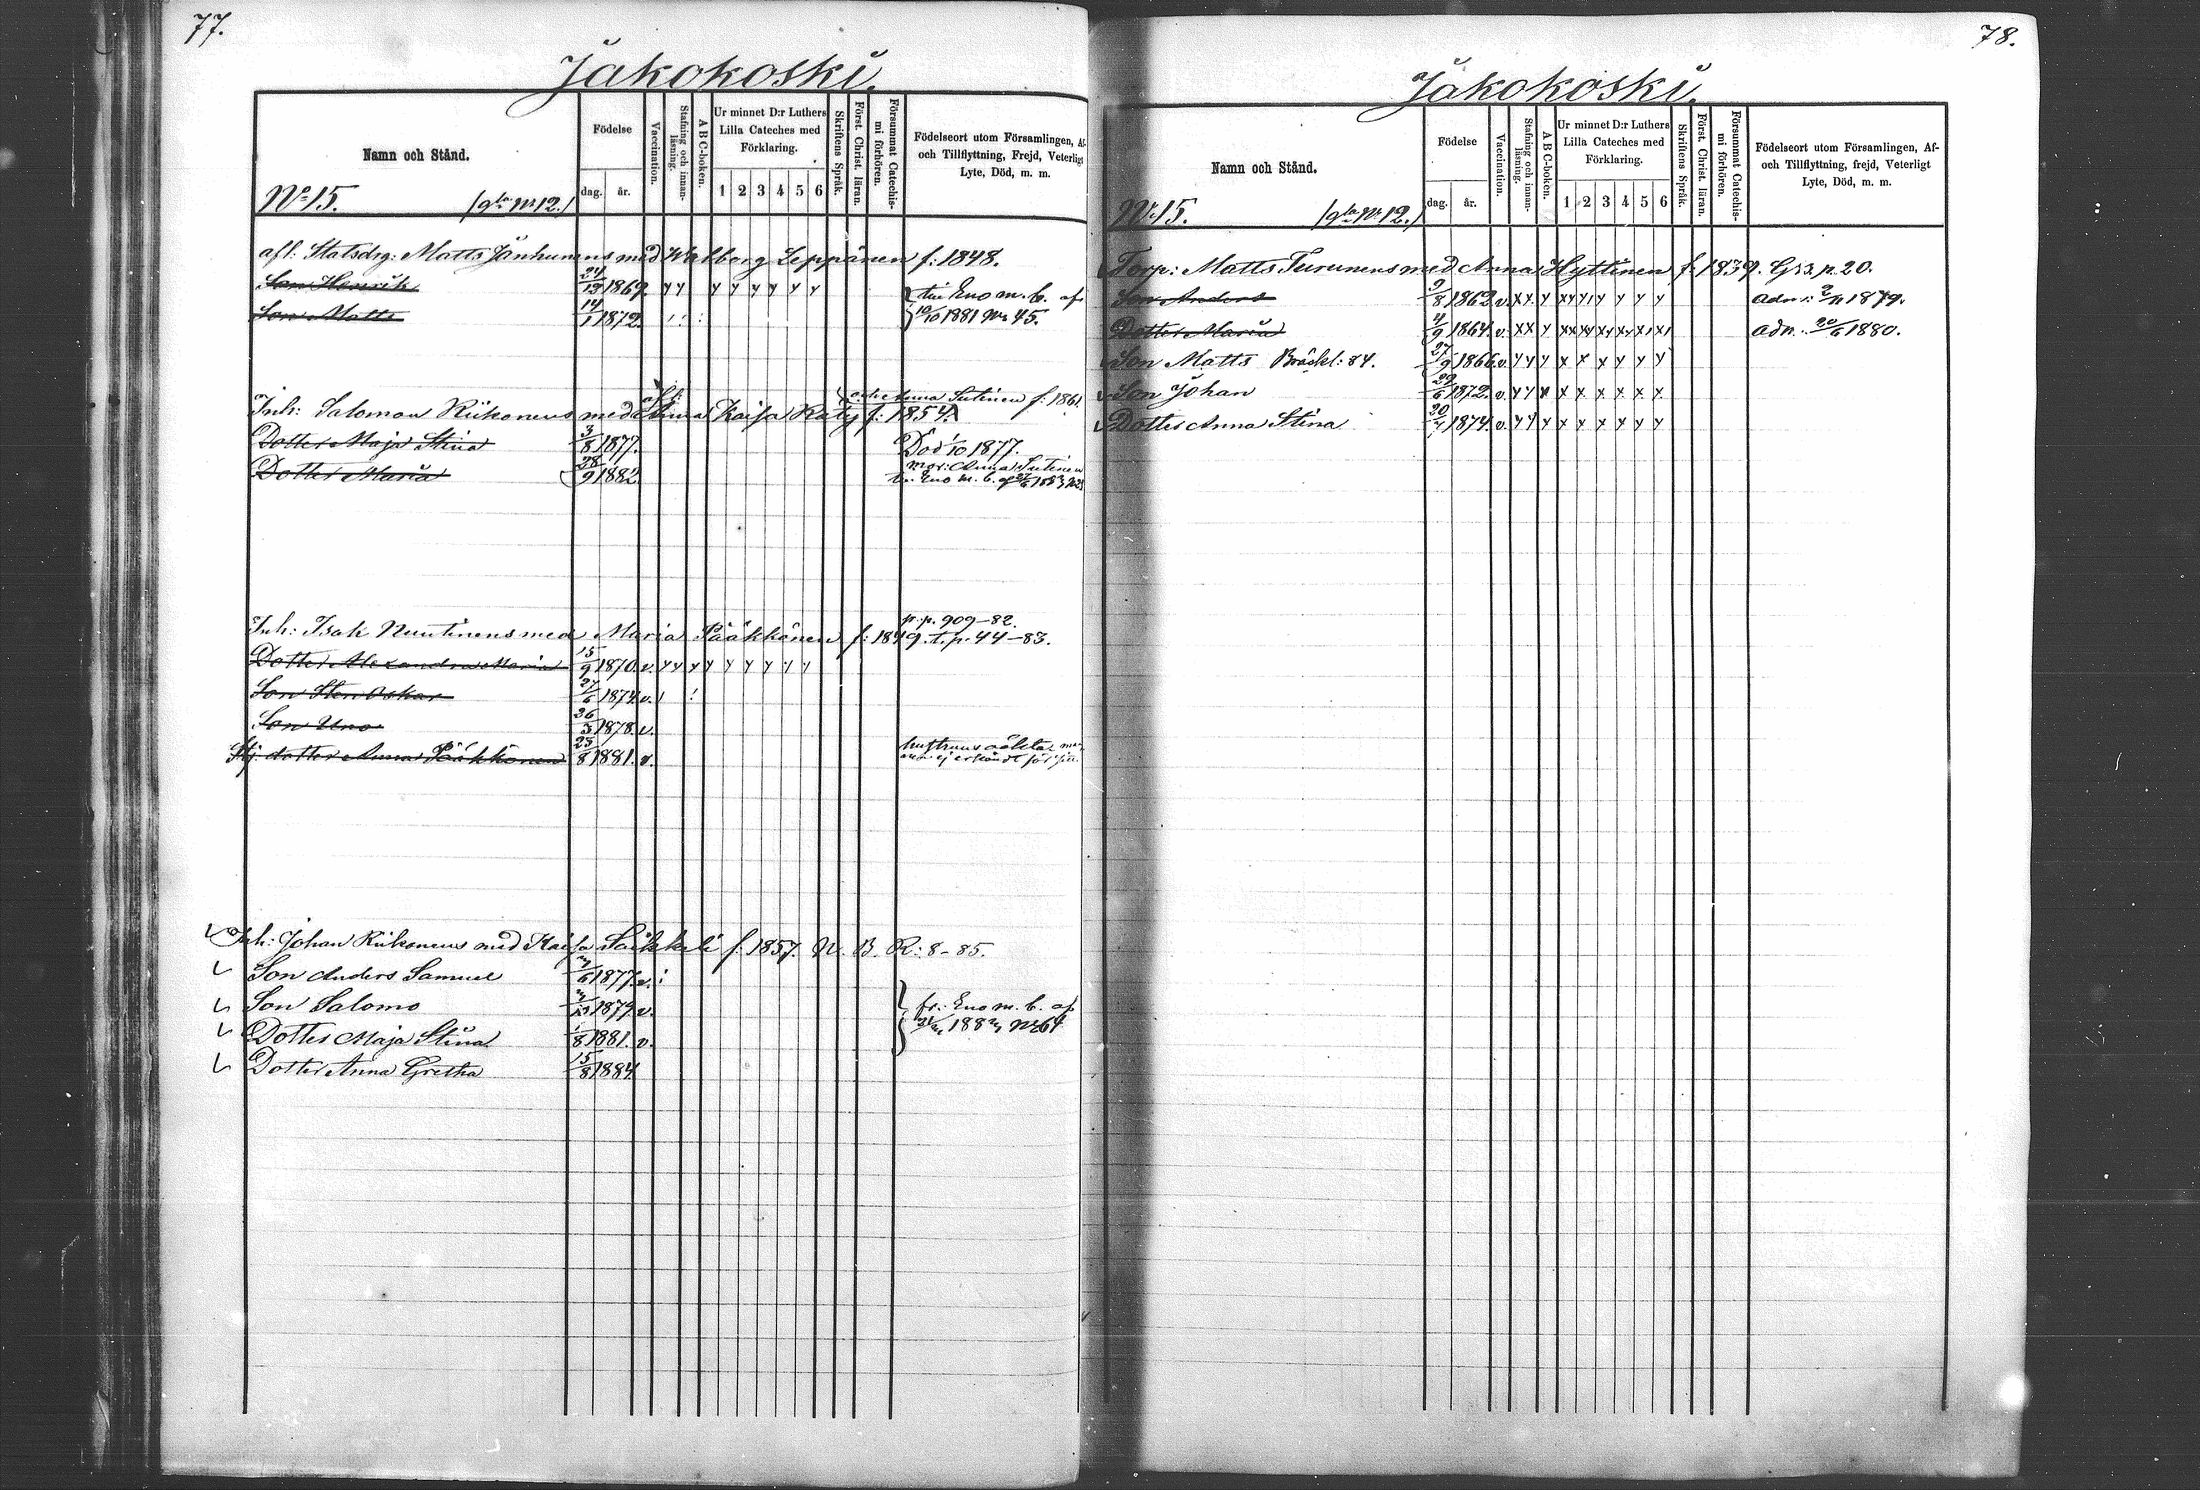 77.
Jakokoski.
Namn och Stånd.
Födelse
dag.
år.
Vaccination.
Stafning och innan-läsning.
A B C-boken.
Ur minnet D:r Luthers
Lilla Cateches med
Förklaring.
1 2 3 4 5 6
Skriftens Språk.
Först. Christ. läran.
Försummat Catechis-mi förhören.
Födelseort utom Församlingen, Af-
och Tillflyttning, Frejd, Veterligt
Lyte, Död, m. m.
No 15. /gla No 12./
afl: Statsdrg: Matts Janhunens med Walborg Leppänen f: 1848.
Son Henrik 24/12 1869. y y y y y y y y till Eno m. b. af
Son Matts 14/1 1872. 10/10 1881 No 45.
och Anna Sutinen f: 1861.
afl:
Inh: Salomon Riikonens med Anna Kaisa Räty f: 1854.
Dotter Maja Stina 3/8 1877. Död 1/10 1877.
mor: Anna Sutinen
Dotter Maria 28/9 1882. t. Eno m. b. af 1883
p. p. 909-82.
Inh: Isak Nuutinens med Maria Pääkkönen f: 1849. t. p. 44-83.
Dotter Alexandra Maria 15/9 1870. v. y y y y y y y y y
Son Sten Oskar 27/6 1874. v.
Son Uno 26/3 1878. v.
dotter Anna Pääkkönen 25/8 1881. v. hustruns oäkta
men ej erkändt för
Inh: Johan Riikonens med Kaisa Saikkeli f: 1857. N. B. R: 8-85.
Son Anders Samuel 6 1877. v.
Son Salomo 1879. v. fr: Eno m. b. af
Dotter Maja Stina 1/8 1881. v. No 64
Dotter Anna Gretha 15/8 1884
78.
Jakokoski.
Namn och Stånd.
Födelse
dag.
år.
Vaccination.
Stafning och innan-läsning.
A B C-boken.
Ur minnet D:r Luthers
Lilla Cateches med
Förklaring.
1 2 3 4 5 6
Skriftens Språk.
Först. Christ. läran.
Försummat Catechis-mi förhören.
Födelseort utom Församlingen, Af-
och Tillflyttning, frejd, Veterligt
Lyte, Död, m. m.
No 15. /gla No 12./
Torp: Matts Turunens med Anna Hyttinen f: 1839. G: 3, p. 20.
Son Anders 9/8 1862. v. adm: 2/11 1879.
Dotter Maria 4/9 1864. v. adm. 20/6 1880.
Son Matts Bräckl: 84. 27/9 1866. v. y y y x x x y y y
Son Johan 29/6 1872. v. y y x x x x x x x
Dotter Anna Stina 20 1874. v. y y y x x x x x x